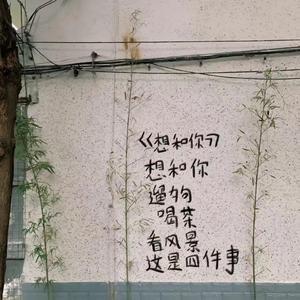 《想和你》
想和你
遛狗
喝茶
看风景
这是四件事